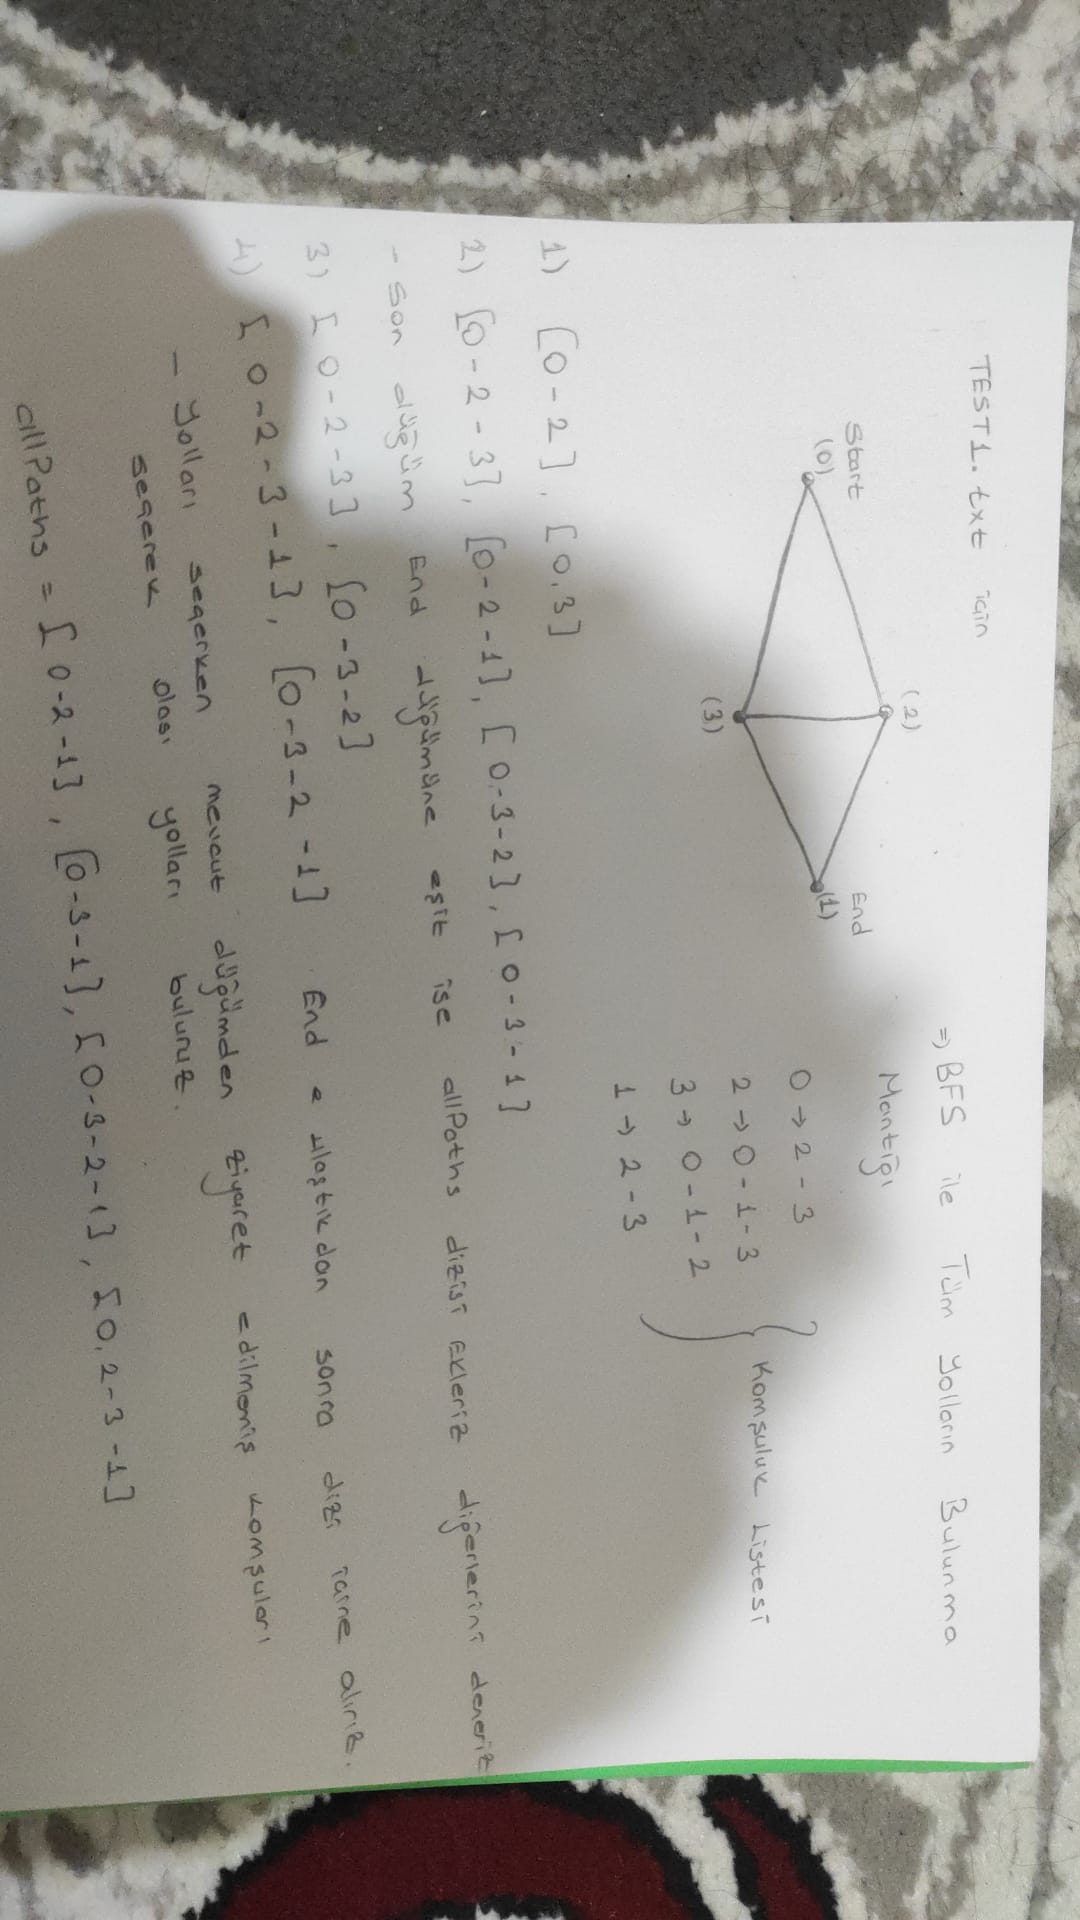 TEST1.txt için
⇒ BFS ile Tüm Yolların Bulunma
Mantığı
(2)
Start
(0)
End
(1)
(3)
0 → 2 - 3
2 → 0 - 1 - 3
3 → 0 - 1 - 2
1 → 2 - 3
Komşuluk Listesi
1) [0-2], [0,3]
2) [0-2-3], [0-2-1], [0-3-2], [0-3-1]
- Son düğüm End düğümüne eşit ise allPaths dizisi Ekleriz diğerlerini deneriz
3) [0-2-3], [0-3-2]
4) [0-2-3-1], [0-3-2-1] End e ulaştıkdan sonra dizi içine alırız.
- Yolları seçerken mevcut düğümden ziyaret edilmemiş komşuları
seçerek olası yolları buluruz.
allPaths = [0-2-1], [0-3-1], [0-3-2-1], [0,2-3-1]